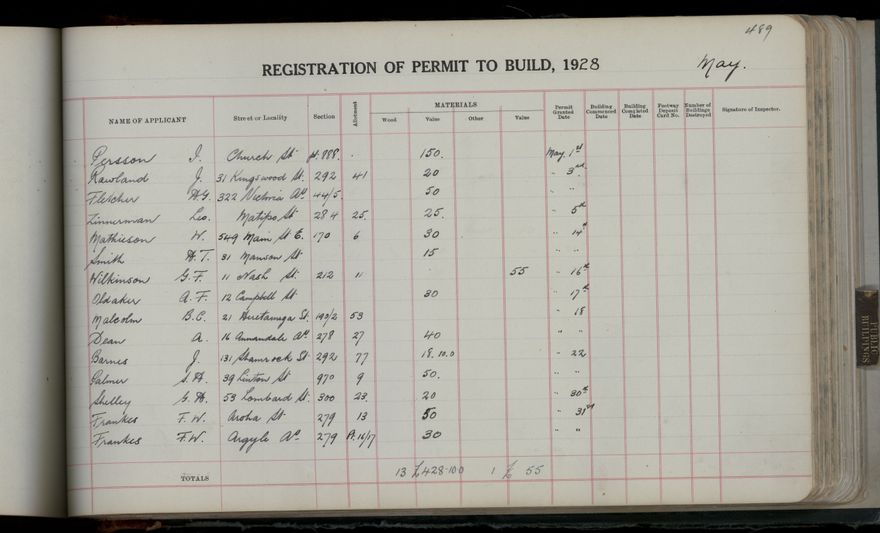 489
REGISTRATION OF PERMIT TO BUILD, 1928 May.
NAME OF APPLICANT Street or Locality Section Allotment MATERIALS Wood Value Other Value Permit Granted Date Building Commenced Date Building Completed Date Footway Deposit Card No. Number of Buildings Destroyed Signature of Inspector.
Persson I. Church St pt. 888. 150. May 1st
Rawland J. 31 Kingswood St. 292 41 20 " 3rd
Fletcher H.G. 322 Victoria Av 44/5. 50 " "
Zinnerman Leo. Matipo St 284 25. 25. " 5th
Mathieson W. 549 Main St E. 170 6 30 " 14th
Smith H.T. 31 Manson St 15 " "
Wilkinson G.F. 11 Nash St. 212 11 55 " 16th
Oldaker A.F. 12 Campbell St 30 " 17th
Malcolm B.C. 21 Heretaunga St. 190/2 53 " 18
Dean A. 16 Annandale Av 278 27 40 " "
Barnes J. 131 Shamrock St. 292 77 18.10.0 " 22
Galmer S.H. 39 Linton St 970 9 50. " "
Shelley G.H. 53 Lombard St. 300 23. 20 " 30th
Frankes F.W. Aroha St 279 13 50 " 31st
Frankes F.W. Argyle Av 279 Pt. 16/17 30 " "
TOTALS 13 £428-10 0 1 £ 55
PUBLIC BUILDINGS